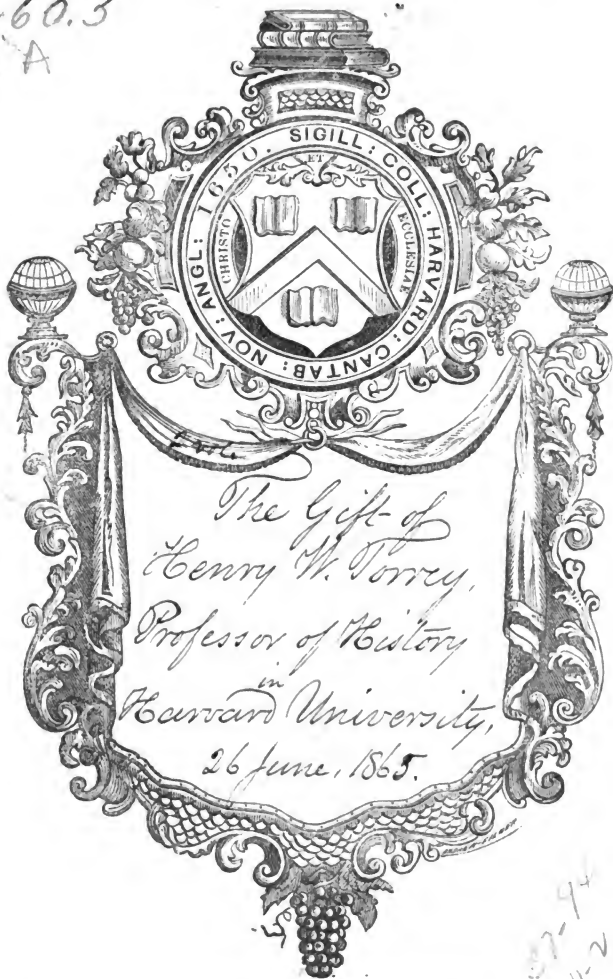 60.5
A
SIGILL: COLL: HARVARD: CANTAB: NOV: ANGL: 1650.
ET
CHRISTO
ECCLESIAE
The Gift of
Henry W. Torrey,
Professor of History
in
Harvard University,
26 June, 1865.